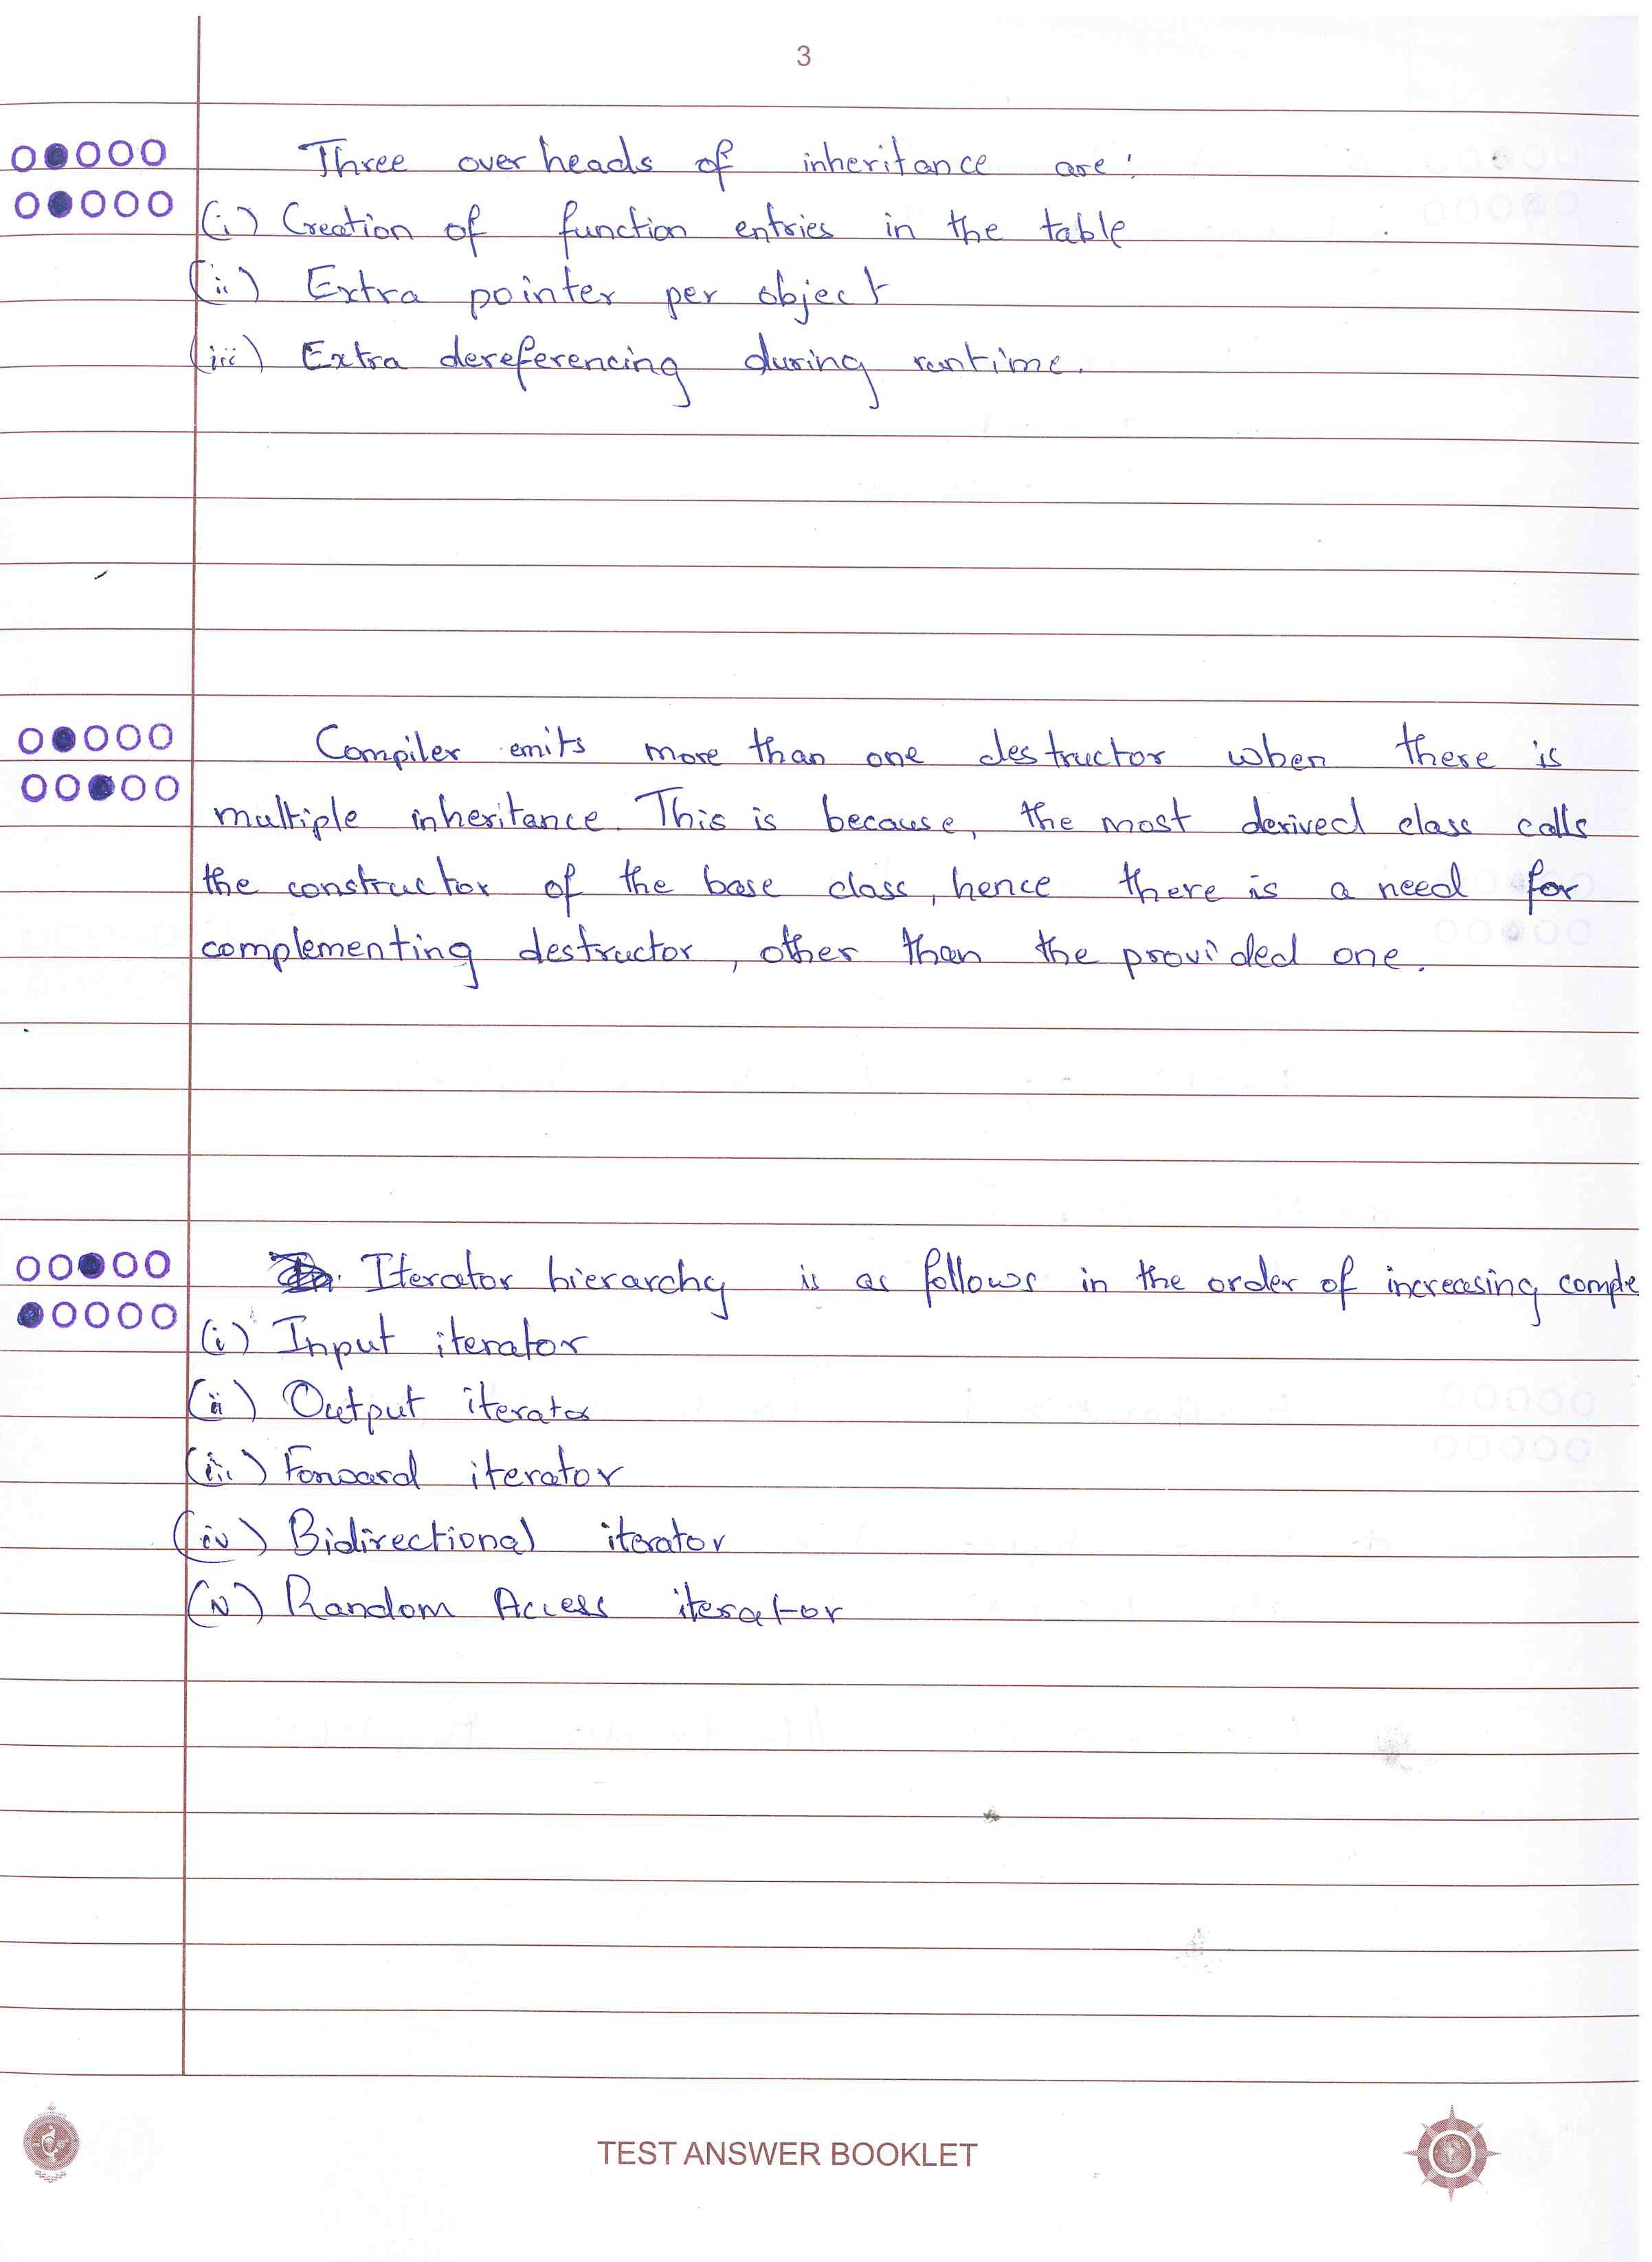 3
Three overheads of inheritance are:
(i) Creation of function entries in the table
(ii) Extra pointer per object
(iii) Extra dereferencing during runtime.
Compiler emits more than one destructor when there is
multiple inheritance. This is because, the most derived class calls
the constructor of the base class, hence there is a need for
complementing destructor, other than the provided one.
Iterator hierarchy is as follows in the order of increasing comple
(i) Input iterator
(ii) Output iterator
(iii) Forward iterator
(iv) Bidirectional iterator
(v) Random Access iterator
TEST ANSWER BOOKLET